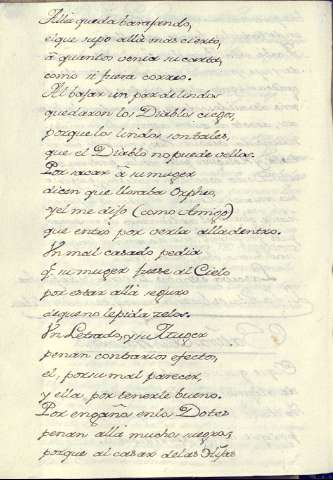 Allà queda barajando,
el que supo allà mas cierto,
à quantos venia su carta,
como si fuera correo.
Al bajar un par de lindos
quedaron los Diablos ciegos,
porque los lindos son tales,
que el Diablo no puede vellos.
Por sacar à su muger
dicen que lloraba Orpheo,
y el me dijo (como Amigo)
que entrò por verla allà dentro.
Un mal casado pedia
q.e su muger fuese al Cielo
por estar allà seguro
de que no le pida zelos.
Un Letrado, y su Muger
penan contrarios efectos,
el, por su mal parecer,
y ella por tenerle bueno.
Por engaños en los Dotes
penan allà muchos suegros,
porque al casar de las Hijas